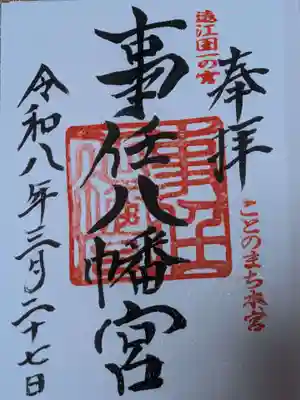 奉拝
ことのまち本宮
遠江国一の宮
事任八幡宮
令和八年三月二十七日